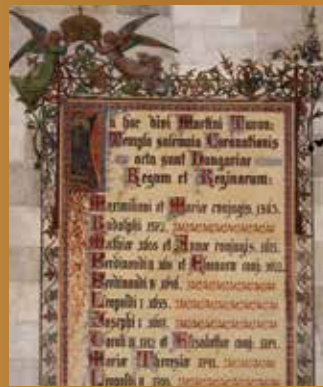 In hoc divi Martini Turon:
Templo solemnia Coronationis
acta sunt Hungariae
Regum et Reginarum:
Maximiliani et Mariae conjugis. 1563.
Rudolphi 1572.
Mathiae 1608 et Annae conjugis. 1613.
Ferdinandi II 1618 et Eleonorae conj. 1622.
Ferdinandi IV
Leopoldi I 1655.
Josephi I 1687.
Caroli III 1712 et Elisabethae conj. 1714.
Mariae Theresiae 1741.
Leopoldi II 1790.